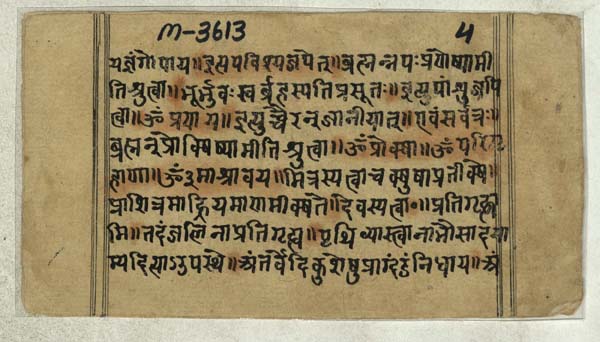 m-3613 4
यज्ञंगोपाय॥इत्युपविश्यजपेत्॥ब्रह्मन्नपःप्रणेष्यामी
तिश्रुत्वा॥भूर्भुवःस्वर्बृहस्पतिप्रसूतः॥इत्युपांशूजपि
त्वा॥ॐप्रणय॥इत्युच्चैरनुजानीयात्॥एवंसर्वत्रः॥
ब्रह्मन्प्रोक्षिष्यामीतिश्रुत्वा॥ॐप्रोक्ष॥ॐ
ॐ३माश्रावय॥मित्रस्यत्वाचक्षुषाप्रतीक्षे॥
प्राशित्रमाह्रियमाणमीक्षते॥देवस्यत्वा॰॥प्रतिगृह्णा
मि॥तदंजलिनाप्रतिगृह्य॥पृथिव्यास्त्वानाभौसादया
म्यदित्याऽउपस्थे॥अंतर्वेदिकुशेषुप्राग्दंडंनिधाय॥अं